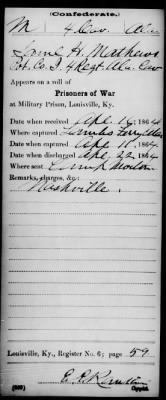 (Confederate.)
M 4 Cav. Ala
H. Mathews
Pvt Co. I, 4 Regt. Ala. Cav
Appears on a roll of
Prisoners of War
at Military Prison, Louisville, Ky.
Date when received Apr. 16, 1864
Where captured Ferry, Ala
Date when captured Apr. 11, 1864
Date when discharged Apr. 22, 1864
Where sent Camp Morton
Remarks, charges, &c:
Nashville.
Louisville, Ky., Register No. 6; page 59
Copyist.